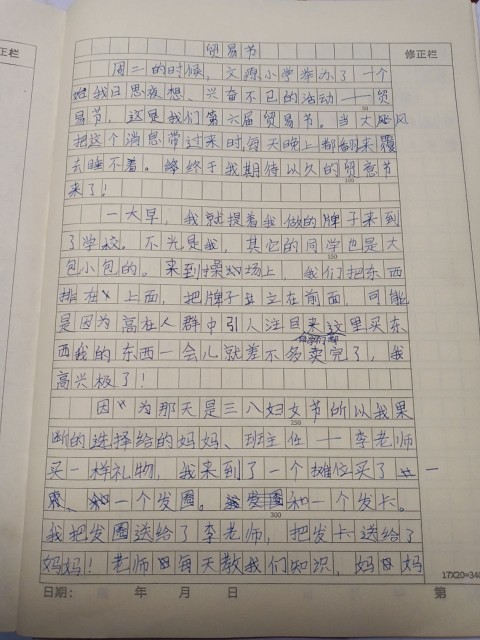 正栏
修正栏
贸易节
周二的时候，文源小学举办了一个
给我日思夜想、兴奋不已的活动——贸
易节，这是我们第六届贸易节。当大
把这个消息带过来时，每天晚上都翻来覆
去睡不着。终于我期待以久的贸意节
来了！
100
一大早，我就提着我做的牌子来到
了学校。不光是我，其它的同学也是大
150
包小包的。来到操场上，我们把东西
排在上面，把牌子立在前面，可能
是因为高在人群中引人注目来这里买东
西我的东西一会儿就差不多卖完了，我
高兴极了！
因为那天是三八妇女节所以我果
250
断的选择给的妈妈、班主任——李老师
买一样礼物，我来到了一个摊位买了一
一个发圈。和一个发卡。
300
我把发圈送给了李老师，把发卡送给了
妈妈！老师每天教我们知识，妈妈
17X20=340
日期： 年 月 日 第